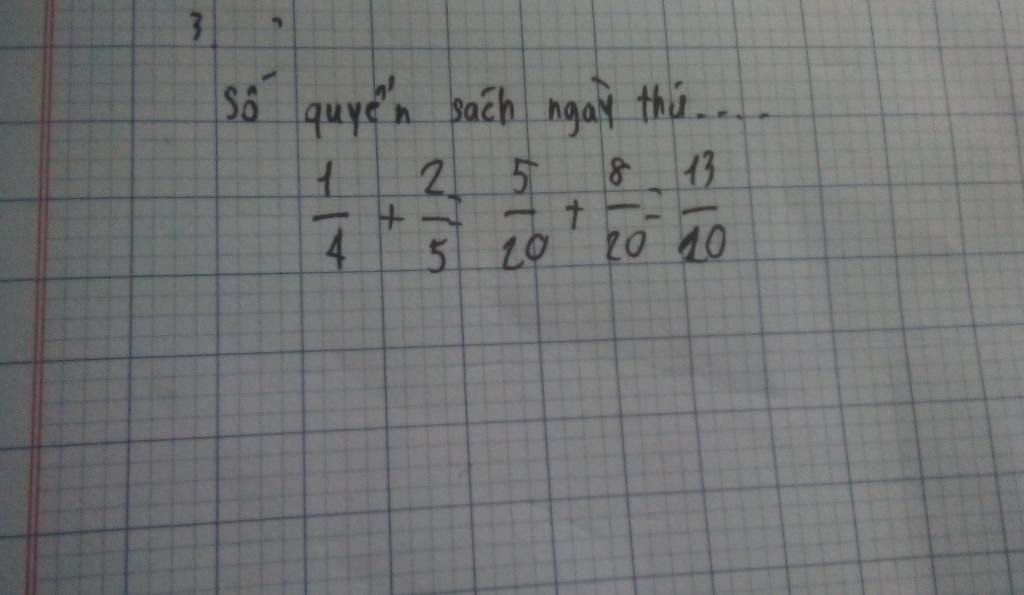 3
Số quyển sách ngày thứ....
1/4 + 2/5 = 5/20 + 8/20 = 13/20